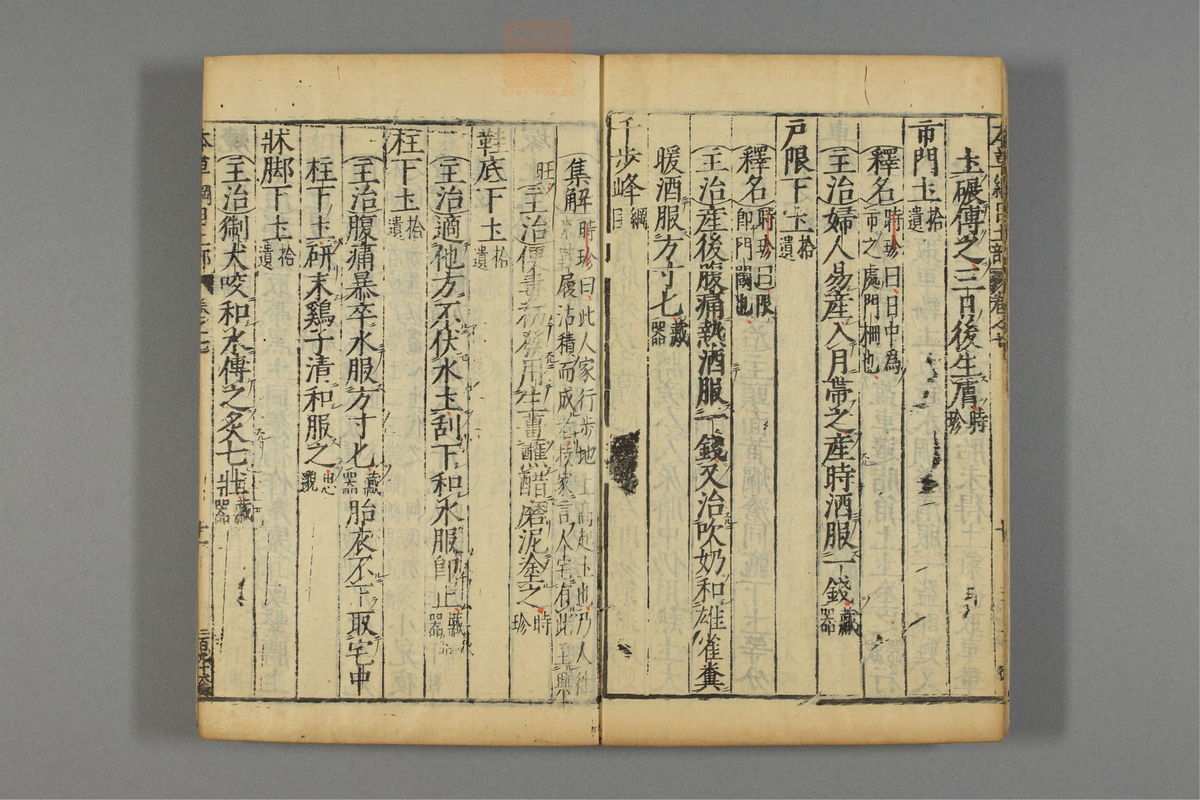 土碾傅之三日後生膚時珍
市門土拾遺
釋名時珍曰日中為市之處門柵也
主治婦人易産入月帶之産時酒服一錢藏器
戸限下土拾遺
釋名時珍曰限即門閾也
主治産後腹痛熱酒服一錢又治吹奶和雄雀糞
暖酒服方寸匕藏器
千步峰綱目
集解時珍曰此人家行步地上高起土也乃人往來鞋履沾積而成者技家言人宅有此主興
旺主治便毒初發用生薑蘸醋磨泥塗之時珍
鞋底下土拾遺
主治適他方不伏水土刮下和水服即止藏器
柱下土拾遺
主治腹痛暴卒水服方寸匕藏器胎衣不下取宅中
柱下土研末雞子清和服之思邈
牀脚下土拾遺
主治猘犬咬和水傅之炙七壯藏器